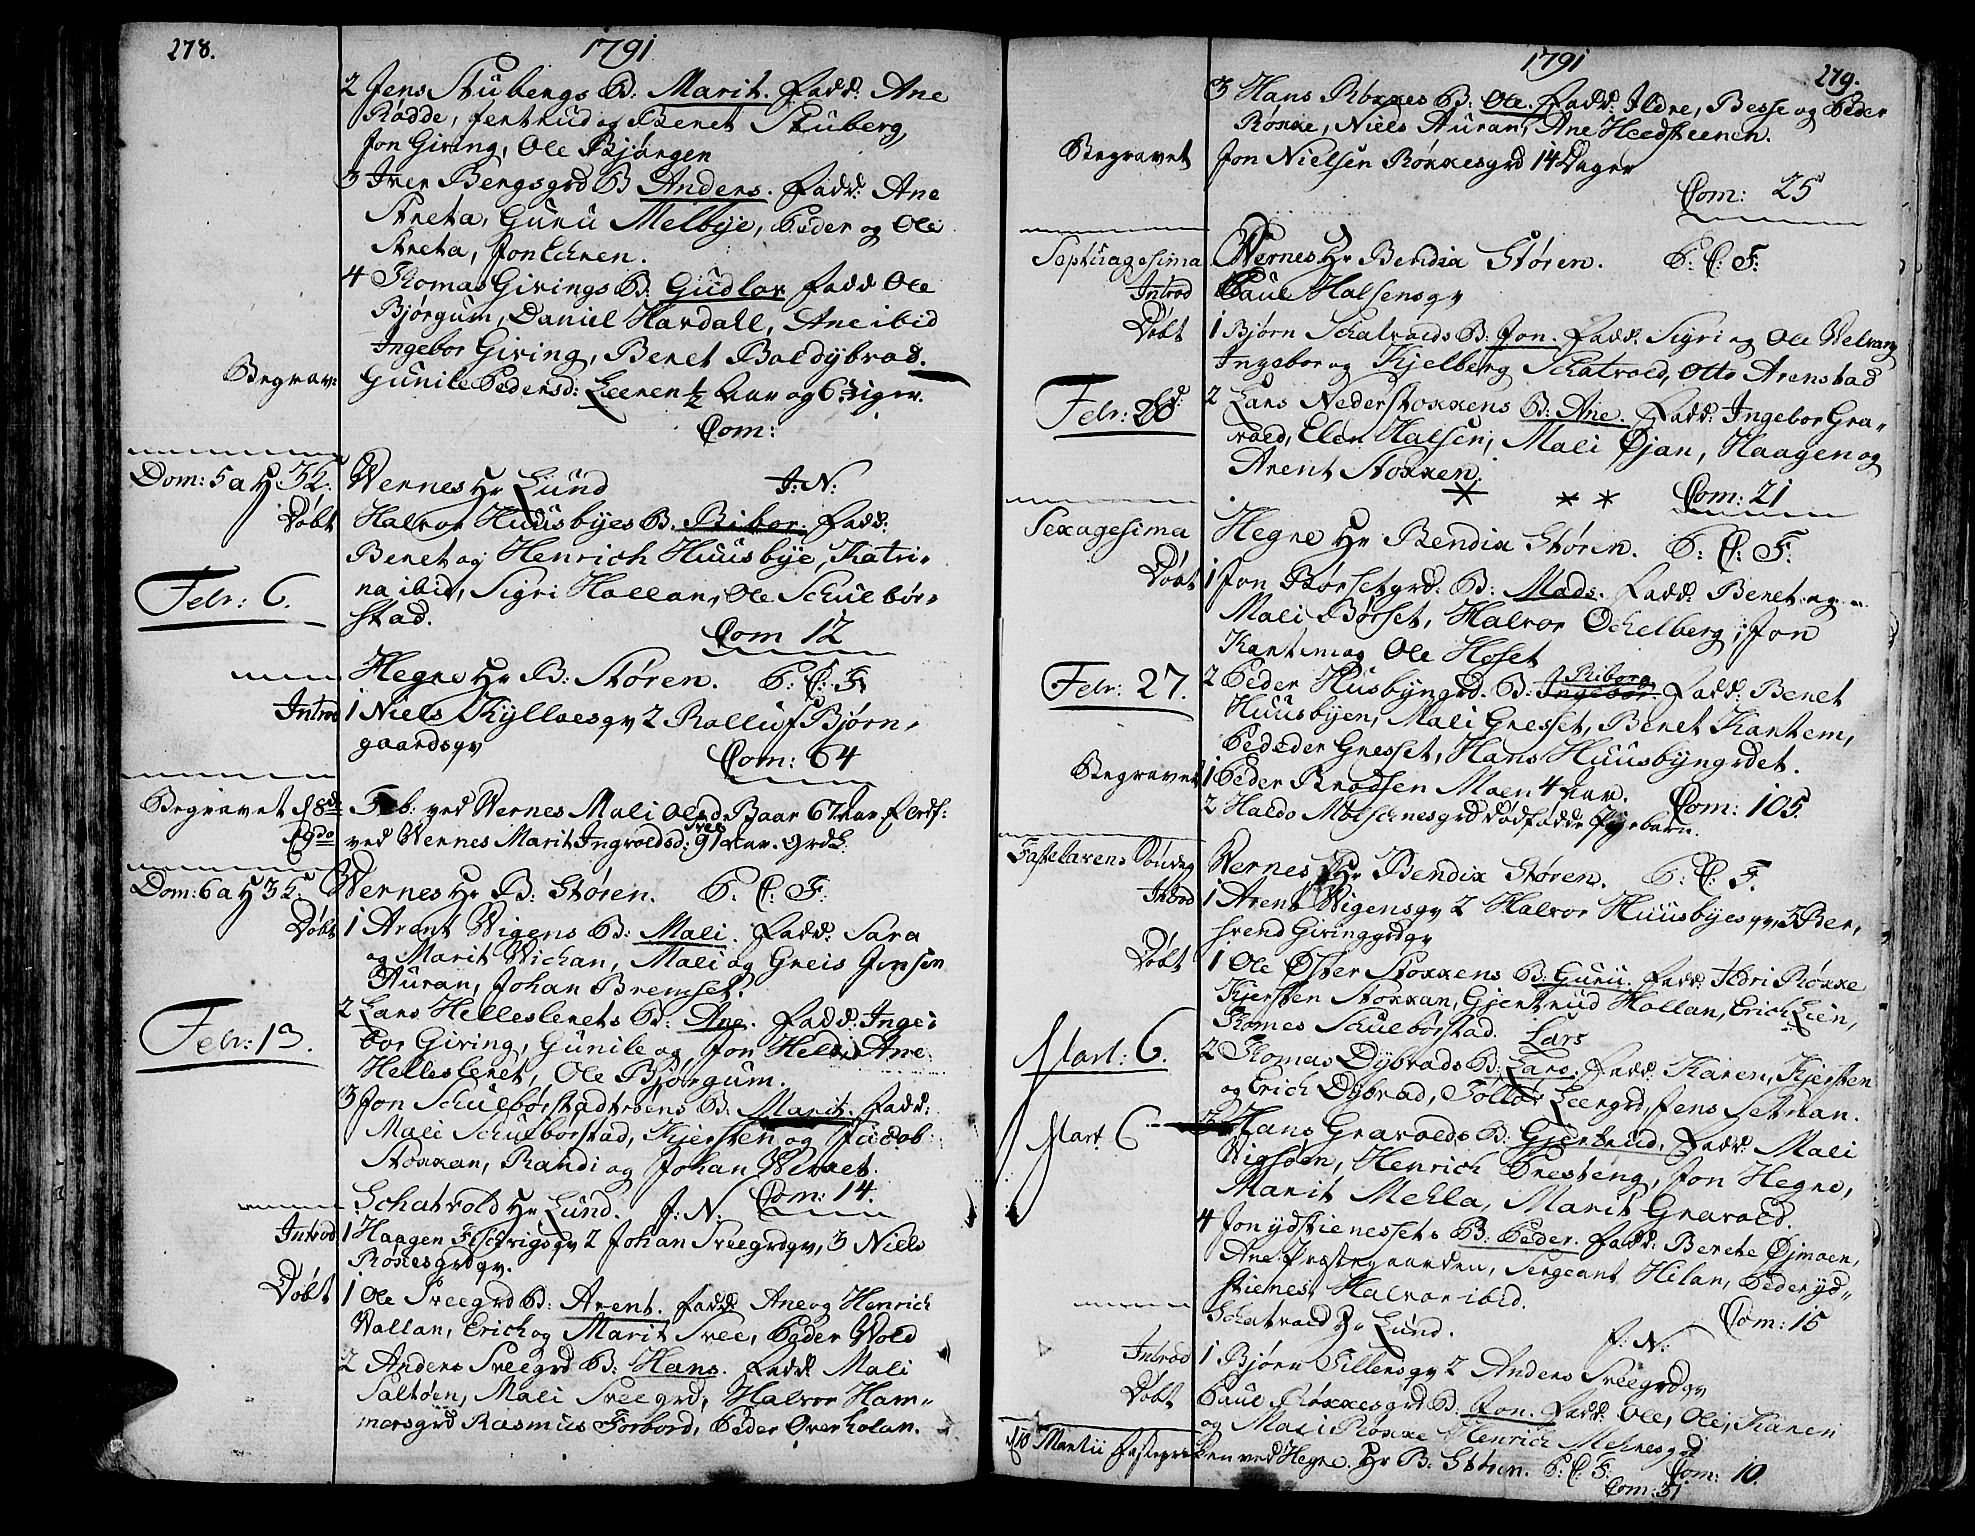 278.
1791
2 Jens Stubergs B: Marit. Fadd: Ane
Rødde, Jertrud og Beret Stuberg,
Jon Giving, Ole Bjørgen
3 Iver Bergsgrd B Anders. Fadd: Ane
Streta, Guru Melbye, Peder og Ole
Streta, Jon Echren.
4 Thomas Givings B: Gudlov Fadd Ole
Bjørgum, Daniel Hardall, Ane ibid
Ingebor Giving, Beret Baldybvad.
Begrav: Gunild Pedersd: Leeren ½ Aar og 6 Uger.
Com:
Dom: 5 a H 3 K. Vernes Hr Lund J: N:
Døbt Halvor Huusbyes B. Ribor. Fadd:
Beret og Henrich Huusbye, Katri-
Febr: 6. na ibid, Sigri Hallan, Ole Schulbør-
stad.
Com 12
Hegre Hr B: Støren. P: C: F:
Introd 1 Niels Kyllaesqv 2 Ralluf Bjørn-
gaardsqv
Com: 64
Begravet d 8de Feb: ved Vernes Mali Olsd. Baar 67 Aar
d 9de ved Vernes Marit Ingvoldsd: Sree 91 Aar.
Dom: 6 a H 3 K. Vernes Hr B: Støren. P. C. F:
Døbt 1 Arent Vigens B: Mali. Fadd: Sara
og Marit Vichan, Mali og Greis Jonsen
Auran, Johan Bremset.
Febr: 13. 2 Lars Helleslerets B: Ane. Fadd: Inge-
bor Giving, Gunild og Jon Helle, Ane
Hellesleret, Ole Bjørgum.
3 Jon Schulbørstadtrøens B: Marit. Fadd:
Mali Schulbørstad, Kjersten og Jacob
Stokkan, Randi og Johan Verket.
Com: 14.
Schatvold Hr Lund. J: N:
Introd 1 Haagen Feschvigsqv 2 Johan Sreegrdqv, 3 Niels
Røkesgrdqv.
Døbt 1 Ole Sreegrd B: Arent. Fadd Ane og Henrich
Vallan, Erich og Marit Sree, Peder Wold
2 Anders Sreegrd B: Hans. Fadd Mali
Saltøen, Mali Sreegrd, Halvor Ham-
mersgrd Rasmus Forbord, Peder Overholan.
1791
279.
3 Hans Røkkes B: Ole. Fadd: Ildre, Besse og Peder
Røkke, Niels Auran, Ane Heedsteenen.
Begravet Jon Nielsen Røkkesgrd 14 Dager
Com: 25
Septuagesima Vernes Hr Bendix Støren. P: C: F:
Introd Paul Halsensqv
Døbt 1 Bjørn Schatvolds B: Jon. Fadd. Sigri og Ole Velvang
Ingebor og Kjelberg Schatvold, Otto Arenstad
Febr: 20d: 2 Lars Nederstokkens B: Ane. Fadd: Ingebor Gra-
vold, Elen Halsen, Mali Øjan, Haagen og
Arent Stokken.
Com: 21
Sexagesima Hegre Hr Bendix Støren. P: C: F:
Døbt 1 Jon Børsetgrd: B: Mads. Fadd: Beret og
Mali Børset, Halvor Ochelberg, Jon
Kantem og Ole Hoset
Febr: 27. 2 Peder Husbyngrd. B: Ingebor. Ribora Fadd: Beret
Huusbyen, Mali Gresset, Beret Kantem,
Pededer Gresset, Hans Huusbyngrdet.
Begravet 1 Peder Knudsen Moen 4 Aar. Com: 105.
2 Haldo Mølschnesgrd dødfødde Pigebarn.
Fastelavens Søndag Vernes Hr Bendix Støren. P: C: F.
Introd 1 Arent Vigensqv 2 Halvor Huusbyesqv, 3 Ber-
hrend Givinggrdqv
Døbt 1 Ole Øster Stokkens B: Guru. Fadd: Ildri Røkke
Kjersten Stokkan, Gjertrud Hollan, Erich Lien,
Thomes Schulbørstad. Lars
Mart: 6. 2 Thomas Dybvads B: Lars. Fadd: Karen, Kjersten
og Erich Dybvad, Tollør Leergrd, Jens Setnan.
Mart 6 3 Hans Gravolds B: Gjertrud. Fadd: Mali
Vigsøen, Henrich Presteng, Jon Hegre,
Marit Mehla, Marit Gravold.
4 Jon ydstienessets B: Peder. Fadd: Berete Øjmoen,
Ane Præstegaarden, Sergeant Hilan, Peder yd-
stienes, Halvor ibid.
Com: 15
Schatvold Hr Lund. J: N:
Introd 1 Bjørn Tillersqv 2 Anders Sreegrdqv
Døbt Paul Røkkesgrd B: Jon. Fadd: Ole, Ole, Karen
og Mali Røkke Henrich Mehnesgrd
Com: 10.
d 10 Martii Fasteprediken ved Hegre. Hr B: Støren. P: C: F.
Com: 31